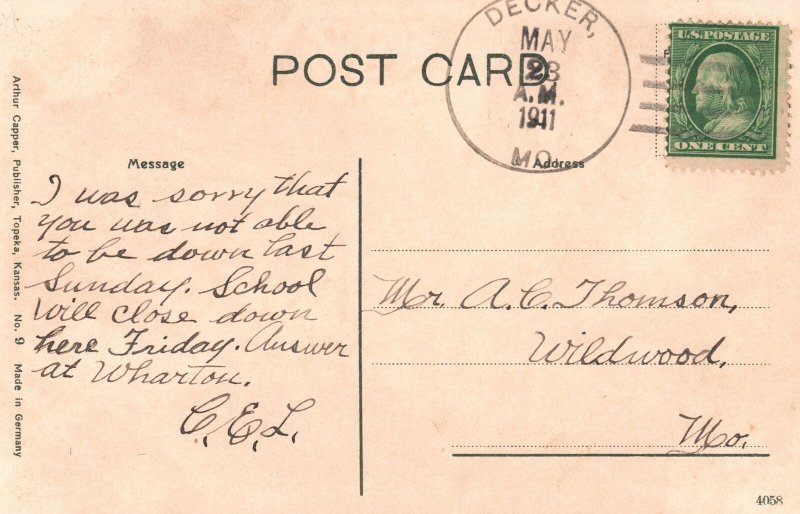 POST CARD
DECKER,
MAY
23
A.M.
1911
MO.
U.S. POSTAGE
ONE CENT
Message
Address
I was sorry that
you was not able
to be down last
Sunday. School
will close down
here Friday. Answer
at Wharton.
C.E.L.
Mr. A.C. Thomson,
Wildwood,
Mo.
Arthur Capper, Publisher, Topeka, Kansas. No. 9 Made in Germany
4058